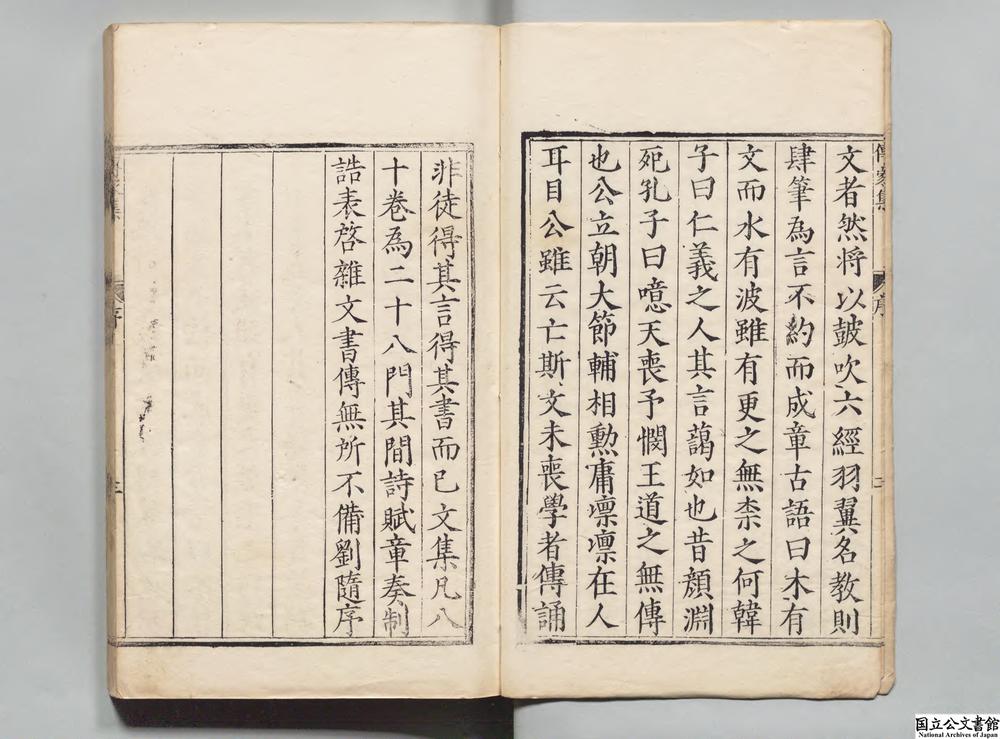 文者然将以皷吹六經羽翼名教則
肆筆為言不約而成章古語曰木有
文而水有波雖有更之無柰之何韓
子曰仁義之人其言藹如也昔顔淵
死孔子曰噫天喪予憫王道之無傳
也公立朝大節輔相勲庸凛凛在人
耳目公雖云亡斯文未喪學者傳誦
非徒得其言得其書而已文集凡八
十卷為二十八門其間詩賦章奏制
誥表啓雜文書傳無所不備劉隨序
傳家集
序
二
國立公文書館
National Archives of Japan